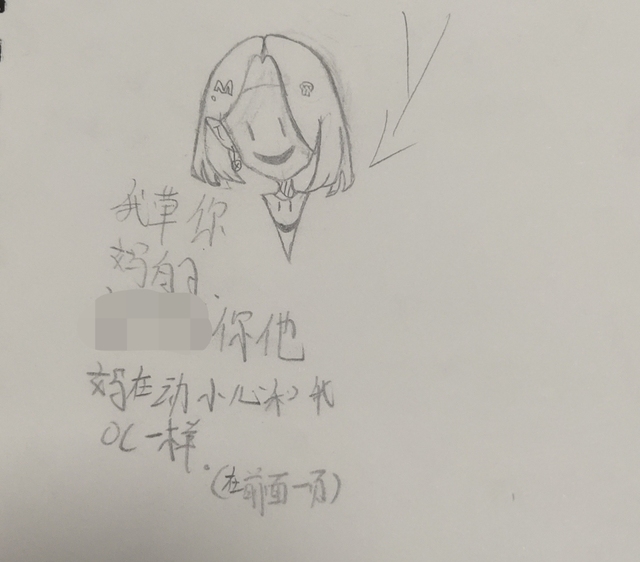 我草你
妈的.
你他
妈在动小心和我
OC一样.
(在前面一页)